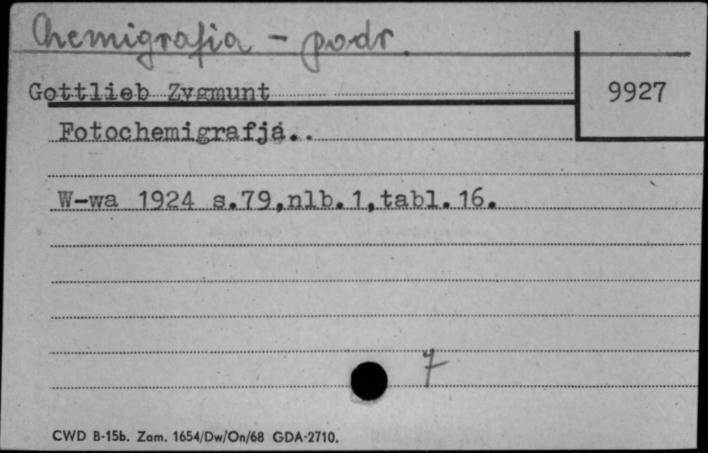 Chemigrafia - podr.
Gottlieb Zygmunt
9927
Fotochemigrafja..
W-wa 1924 s.79,nlb.1,tabl.16.
7
CWD B-15b. Zam. 1654/Dw/On/68 GDA-2710.